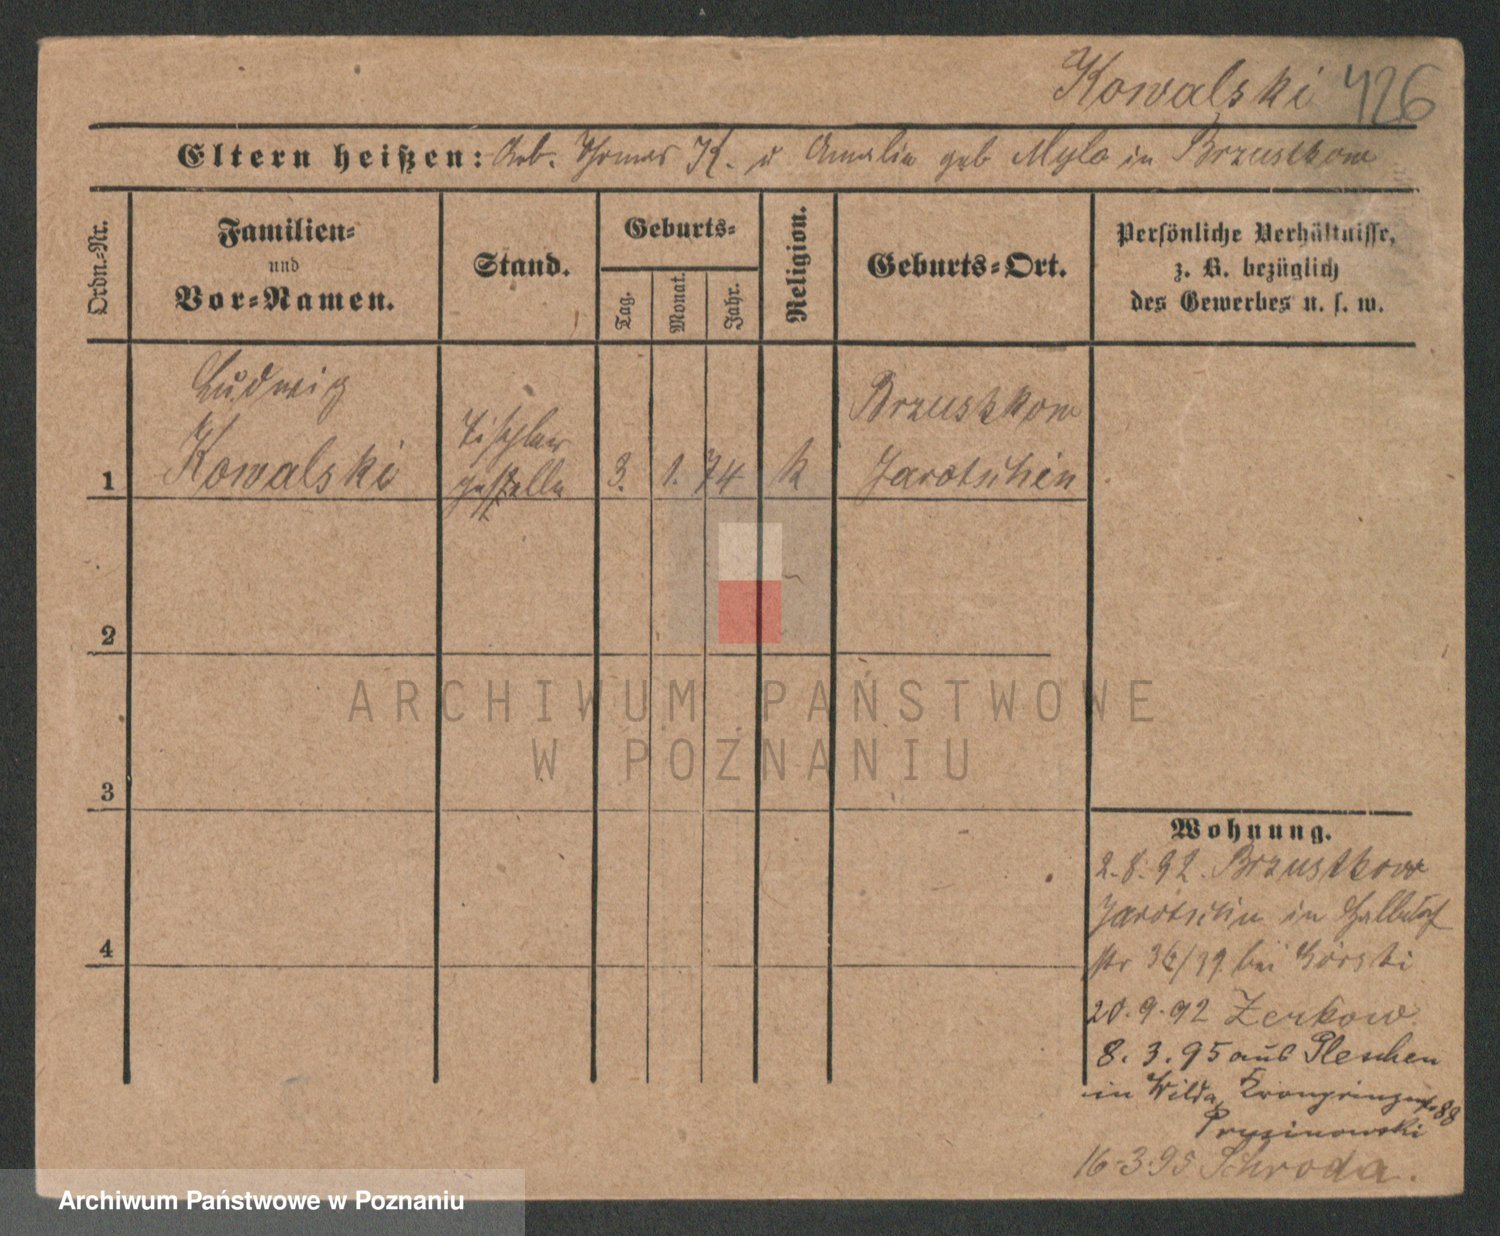 Kowalski 426
Eltern heißen: Arb. Thomas K. u Amalia geb Myla in Brzustkow
Ordn.-Nr.
Familien-
und
Vor-Namen.
Stand.
Geburts-
Tag.
Monat.
Jahr.
Religion.
Geburts-Ort.
Persönliche Verhältnisse,
z. B. bezüglich
des Gewerbes u. s. w.
Ludwig
Kowalski
Tischler
geselle
3. 1. 74 k
Brzustkow
Jarotschin
1
2
3
4
ARCHIWUM PAŃSTWOWE
W POZNANIU
Wohnung.
2.8.92. Brzustkow
Jarotschin in Halbdorf
str 36/39 bei Górski
20.9.92 Zerkow
8.3.95 aus Pleschen
in Wilda, Kronprinzenstr 88
Prusinowski
16-3-95 Schroda.
Archiwum Państwowe w Poznaniu